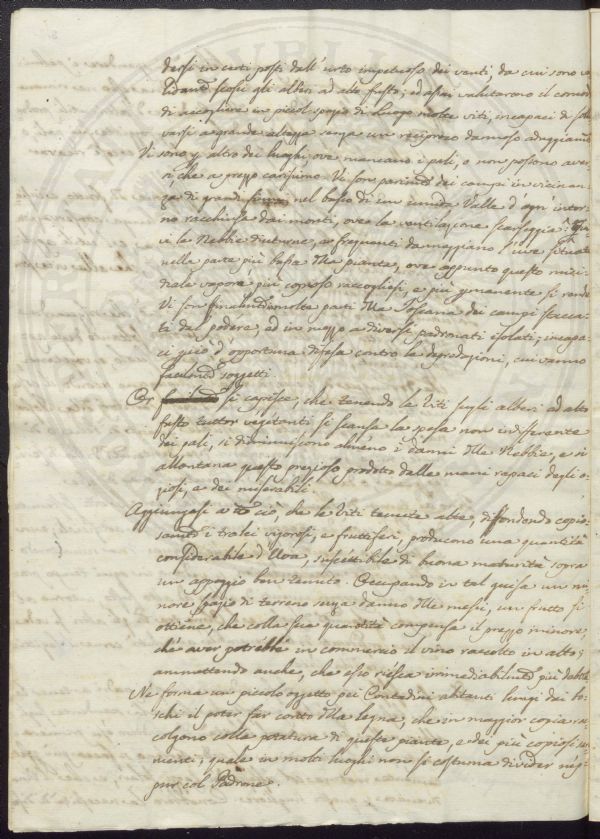 dersi in certi posti dall'urto impetuoso dei venti, da cui sono va-
lidamte scossi gli alberi ad alto fusto; ed assai valutarono il comodo
di accogliere in piccol spazio di luogo molte viti, incapaci di solle-
varsi a grande altezza senza un reciproco dannoso aduggiamto.
Vi sono p altro dei luoghi, ove mancano i pali, o non possono aver-
si, che a prezzo carissimo. Vi son parimte dei campi in vicinan-
za di grandi fiumi, nel basso di un umida Valle d'ogn'intor-
no racchiusa dai monti, ove la ventilazione scarseggia:
vi le Nebbie diuturne, e frequenti danneggiano l'uve situate
nella parte più bassa della pianta, ove appunto questo mici-
diale vapore più copioso raccogliesi, e più permanente si rende.
Vi son finalmte in molte parti della Toscana dei campi stacca-
ti dal podere, ed in mezzo a diversi padronati isolati; incapa-
ci d'opportuna difesa contro le depredazioni, cui vanno
facilmte soggetti.
Or si capisce, che tenendo le Viti sugli alberi ad alto
fusto tuttor vegetanti si scansa la spesa non indifferente
dei pali, si diminuiscono almeno i danni delle Nebbie, e si
allontana questo prezioso prodotto dalle mani rapaci degli o-
ziosi, e dei miserabili.
Aggiungasi a tto ciò, che le Viti tenute alte, diffondendo copio-
samte i tralci vigorosi, e fruttiferi, producono una quantità
considerabile d'Uva, suscettibile di buona maturità sopra
un appoggio ben tenuto. Occupando in tal guisa un mi-
nore spazio di terreno senza danno delle messi, un frutto si
ottiene, che colla sua quantità compensa il prezzo minore,
che aver potrebbe in commercio il vino raccolto in alto;
ammettendo anche, che esso riesca irrimediabilmte più debole.
Ne forma un piccolo oggetto pei Contadini abitanti lungi dai bo-
schi il poter far conto della legna, che in maggior copia rac-
colgono colla potatura di queste piante, e dei più copiosi
menti; quale in molti luoghi non si costuma divider nep-
pur col Padrone.